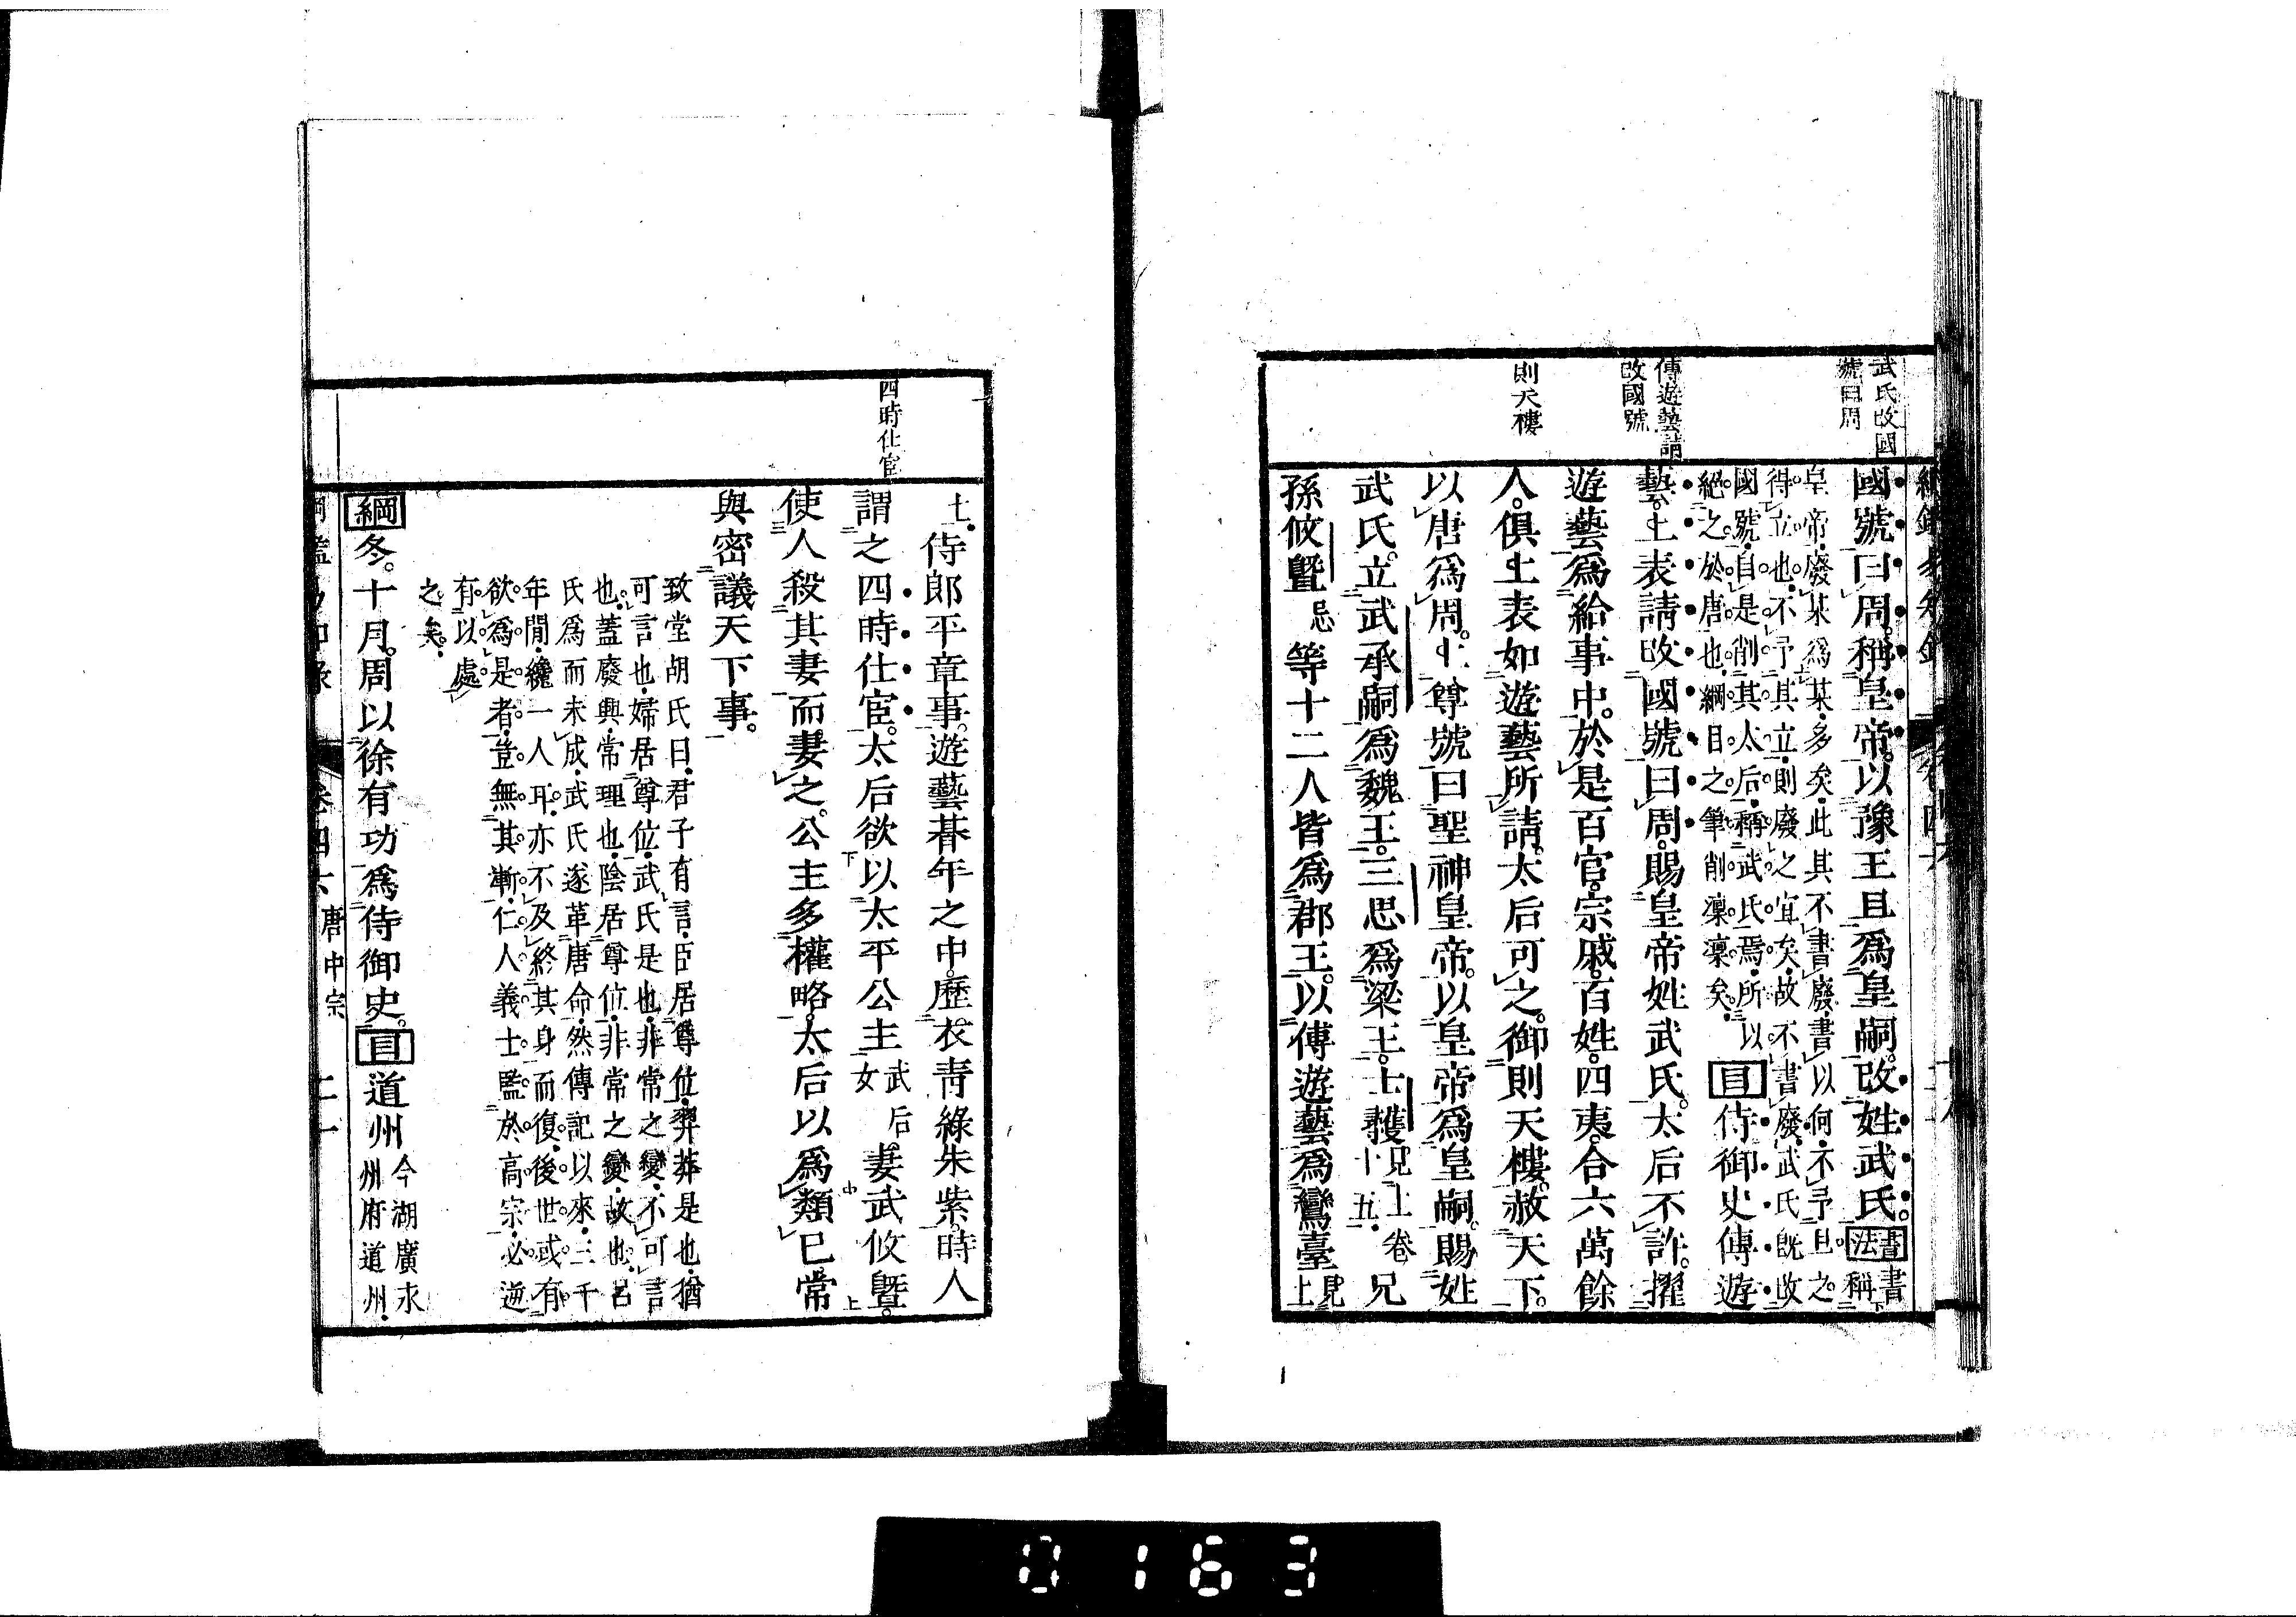 武氏改國
號曰周
傅遊藝請
改國號
則天樓
國號曰周。稱皇帝。以豫王旦爲皇嗣。改姓武氏。書法書稱
皇帝。廢某爲某。多矣。此其不書廢。書以何。不予旦之
得立也。不予其立。則廢之宜矣。故不書廢。武氏旣改
國號。自是削其太后。稱武氏焉。所以
絕之於唐也。綱目之筆削凜凜矣。目侍御史傅遊
藝。上表請改國號曰周。賜皇帝姓武氏。太后不許。擢
遊藝爲給事中。於是百官。宗戚。百姓。四夷。合六萬餘
人。俱上表如遊藝所請。太后可之。御則天樓。赦天下。
以唐爲周。上尊號曰聖神皇帝。以皇帝爲皇嗣。賜姓
武氏。立武承嗣爲魏王。三思爲梁王。士彠見上卷十五。兄
孫攸暨忌等十二人皆爲郡王。以傅遊藝爲鸞臺見上
四時仕宦
上。侍郎平章事。遊藝朞年之中。歷衣靑綠朱紫。時人
謂之四時仕宦。太后欲以太平公主武后女。妻武攸暨。
使人殺其妻而妻之。公主多權略。太后以爲類已。常
與密議天下事。
致堂胡氏曰。君子有言。臣居尊位。羿莽是也。猶
可言也。婦居尊位。武氏是也。非常之變。不可言
也。蓋廢興。常理也。陰居尊位。非常之變。故也。呂
氏爲而未成。武氏遂革唐命。然傳記以來。三千
年閒。纔一人耳。亦不及終其身而復。後世或有
欲爲是者。豈無其漸。仁人義士監於高宗。必迤
有以處
之矣。
綱冬。十月。周以徐有功爲侍御史。目道州今湖廣永州府道州。
唐中宗
0163